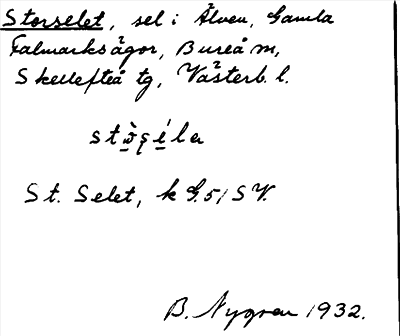 Storselet, sel i Älven, Gamla
Falmarksägor, Bureå m,
Skellefteå tg, Västerb. l.
St. Selet, k G.51 SV.
B. Nygren 1932.